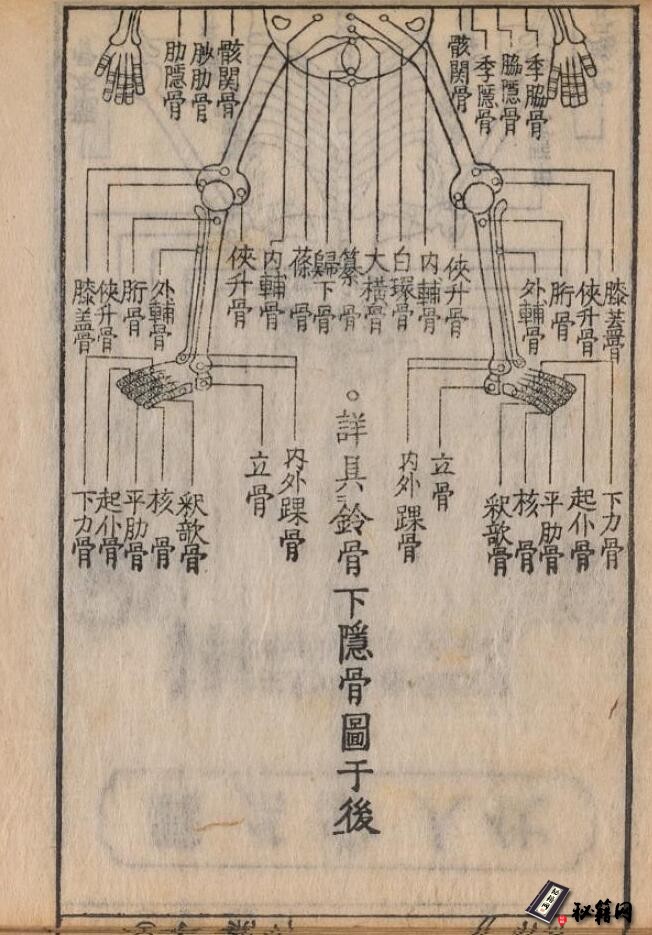 季脇骨
脇隱骨
季隱骨
骸関骨
骸関骨
肋隱骨
膝盖骨
俠升骨
胻骨
外輔骨
俠升骨
内輔骨
白環骨
大横骨
纂骨
歸下骨
蓧骨
内輔骨
俠升骨
外輔骨
胻骨
俠升骨
膝盖骨
下力骨
起仆骨
平肋骨
核骨
釈欹骨
立骨
内外踝骨
詳具鈴骨下隱骨圖于後
内外踝骨
立骨
釈欹骨
核骨
平肋骨
起仆骨
下力骨
秘籍网